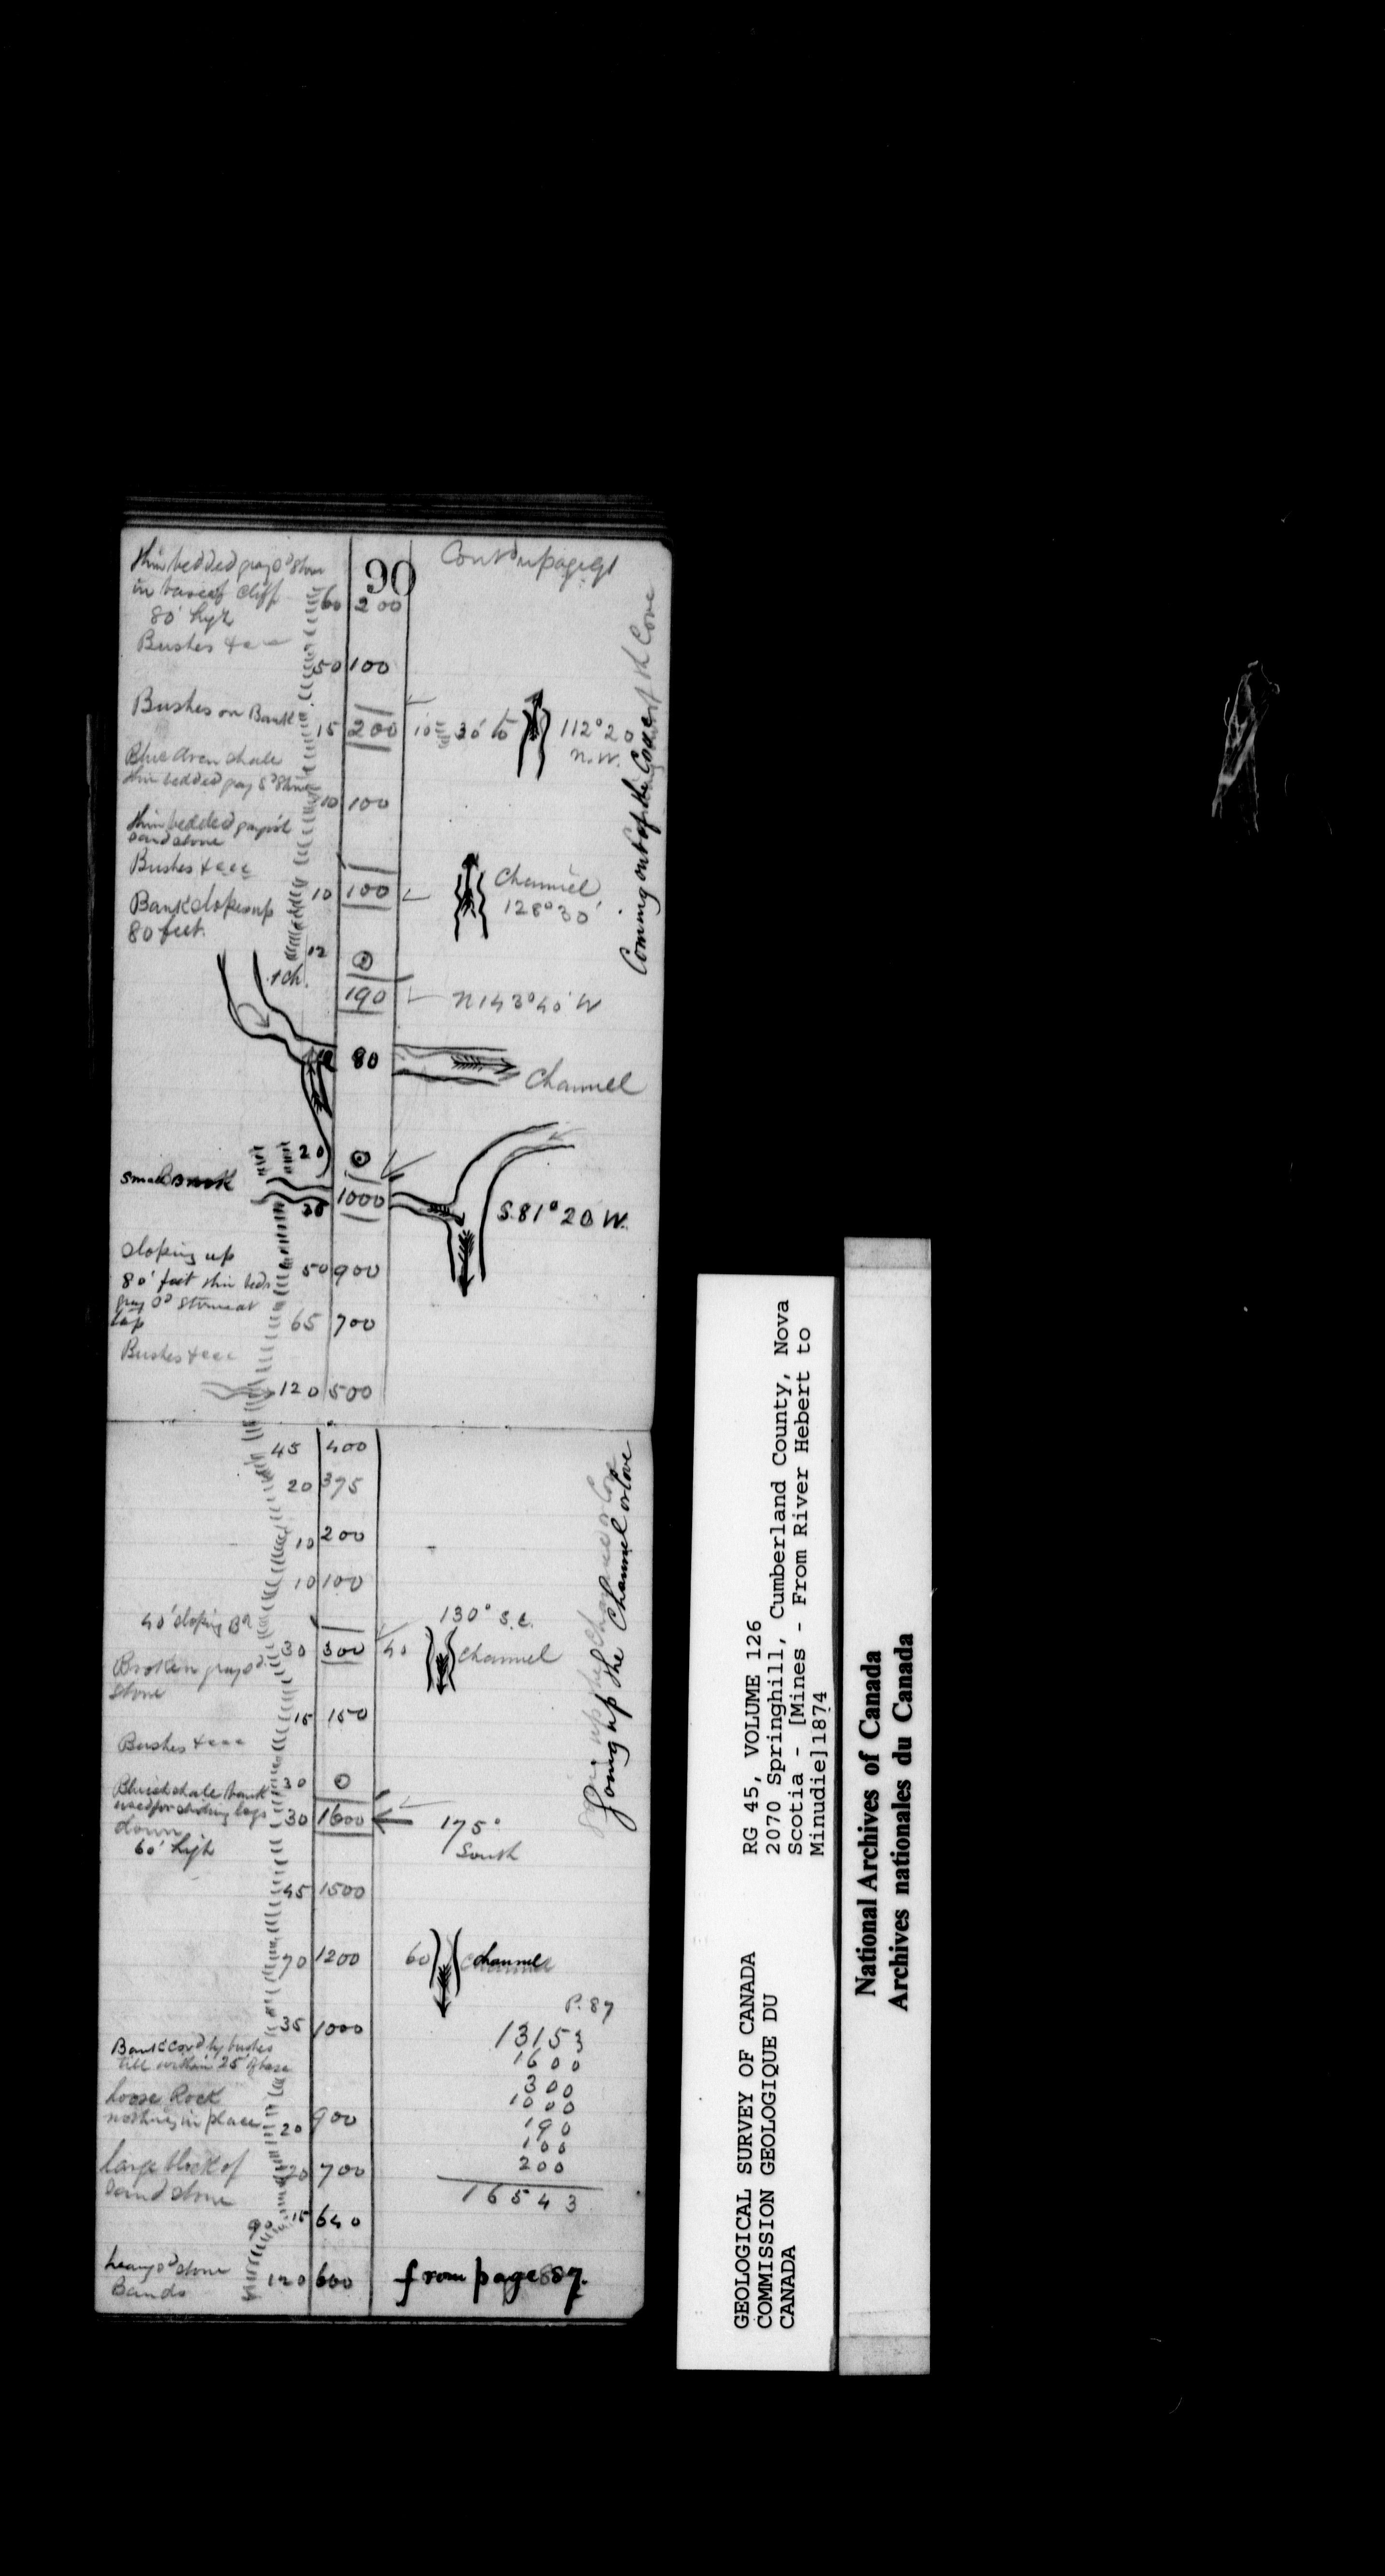 90
Contd page 91
thin bedded gray Sd Stone
in base of Cliff
80' high
60 200
Bushes &c
50 100
Bushes on Bank
15 200 10 30' to 112° 20
N.W.
Blue Aren shale
thin bedded gray Sd Stone
10 100
thin bedded grayish
sandstone
Bushes &c
10 100
Channel
128° 30'
Bank slopes up
80 feet.
12
1 ch.
190 N 143° 40' W
80
Channel
Coming out of the Cove
20
Small Brook
1000
30
S. 81° 20 W.
Sloping up
80' feet thin beds
gray Sd Stone at
top
50 900
65 700
Bushes &c
120 500
45 400
20 375
10 200
10 100
130° S.E.
40' sloping Bk
30 300 40 Channel
Broken gray Sd
Stone
15 150
Bushes &c
30 0
Bluish shale bank
used for sliding logs
down
60' high
30 1600
175°
South
Going up the Channel or Cove
45 1500
70 1200 60 Channel
35 1000
Bank Covd by bushes
till within 25' of base
Loose Rock
nothing in place
20 900
large block of
Sandstone
20 700
90 15 640
heavy Sd stone
Bands
120 600
P. 87
13153
1600
300
1000
190
100
200
16543
from page 87.
GEOLOGICAL SURVEY OF CANADA
COMMISSION GEOLOGIQUE DU
CANADA
RG 45, VOLUME 126
2070 Springhill, Cumberland County, Nova
Scotia - [Mines - From River Hebert to
Minudie] 1874
National Archives of Canada
Archives nationales du Canada